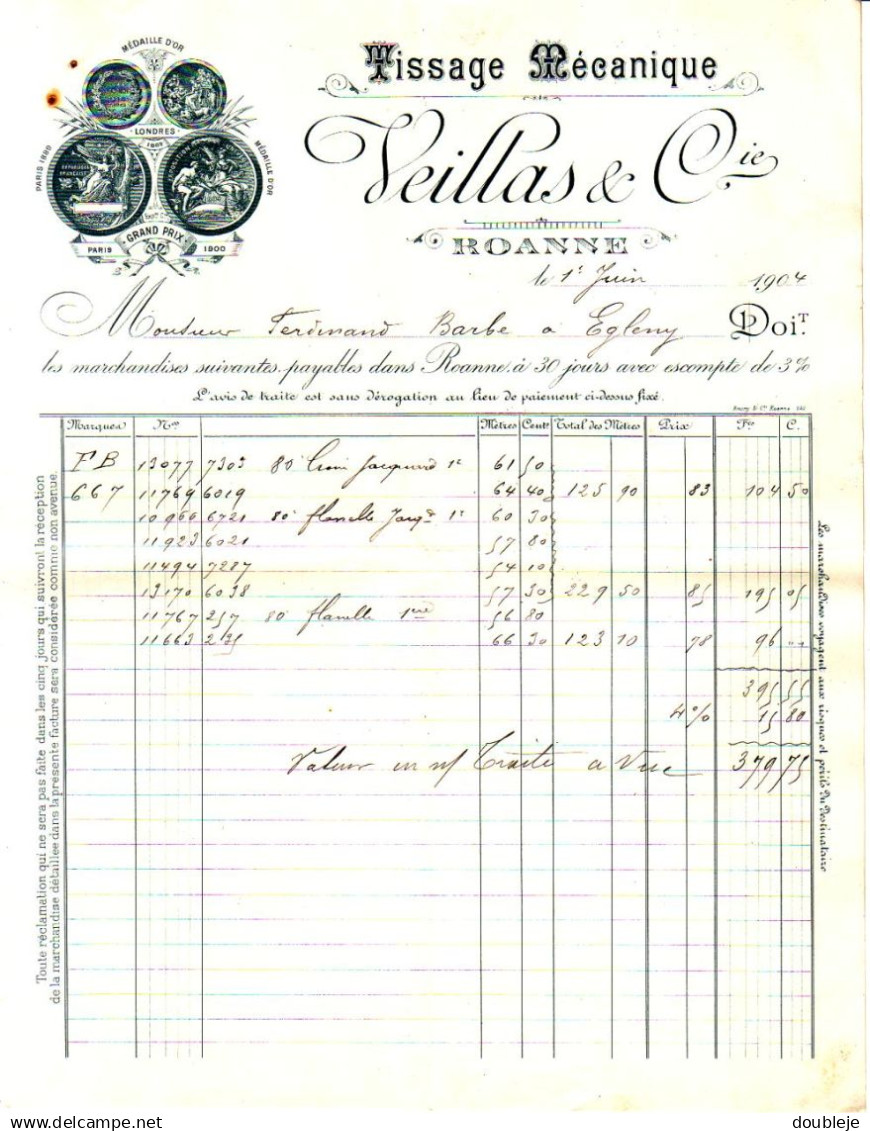 MÉDAILLE D'OR
LONDRES
PARIS 1889
MÉDAILLE D'OR
REPUBLIQUE FRANÇAISE
GRAND PRIX
PARIS 1900
Tissage Mécanique
Veillas & Cie
ROANNE
le 1r Juin 1904
Monsieur Ferdinand Barbe a Egleny Doit.
les marchandises suivantes payables dans Roanne à 30 jours avec escompte de 3%
L'avis de traite est sans dérogation au lieu de paiement ci-dessus fixé.
Marques Nos Mètres Cents Total des Mètres Prix Frs C.
FB 13077 7303 80 Jacquard 1e 61 50
667 11769 6019 64 40 125 90 83 104 50
10966 6721 80 flanelle Jacqd 1e 60 30
11923 6021 57 80
11494 7287 54 10
13170 6038 57 30 229 50 85 195 05
11767 257 80 flanelle 56 80
11663 235 66 30 123 10 78 96 "
395 55
4% 15 80
Valeur en n/ Traite a Vue 379 75
Toute réclamation qui ne sera pas faite dans les cinq jours qui suivront la réception
de la marchandise détaillée dans la présente facture sera considérée comme non avenue.
Les marchandises voyagent aux risques et périls du Destinataire
doubleje